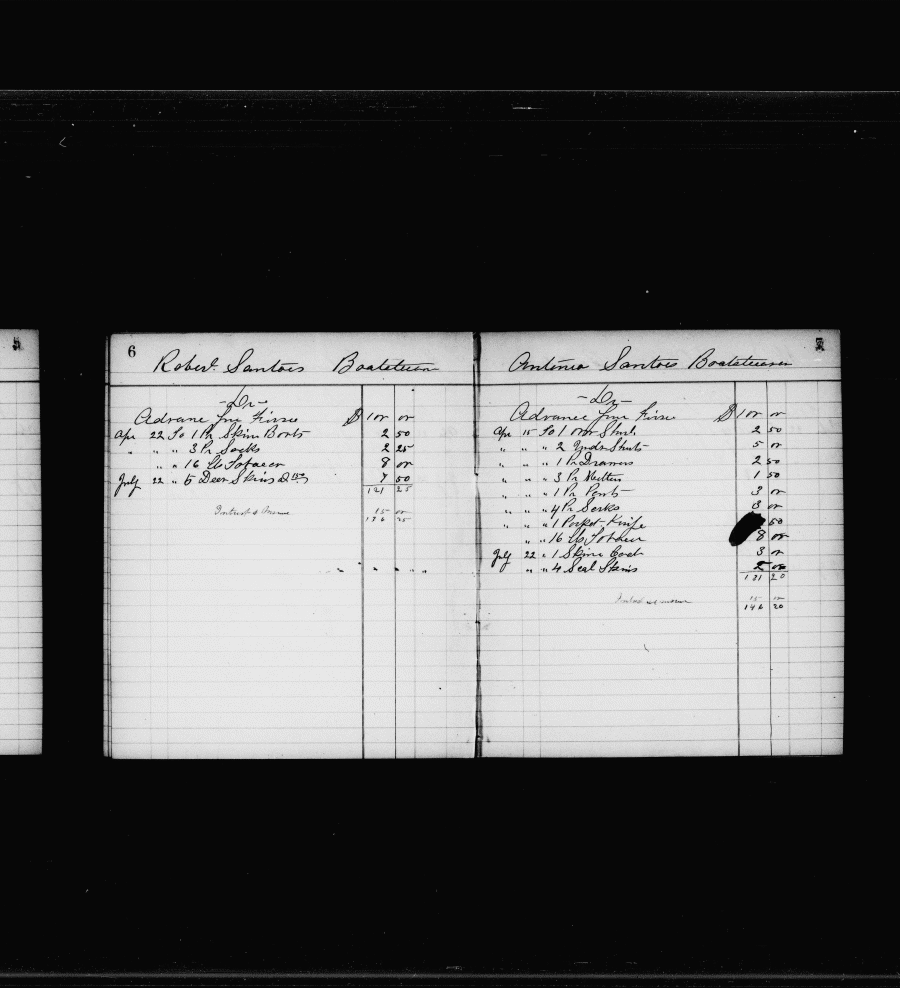 6
Robert Santos Boatsteerer
- Dr -
Advance $ 100 00
Apr 22 To 1 Pr Skin Boots 2 50
" " " 3 Pr Socks 2 25
" " 16 Lb Tobacco 8 00
July 22 " 5 Deer Skins @ 1 50 7 50
121 25
15 00
" " " " "
7
Antonio Santos Boatsteerer
- Dr -
Advance $ 100 00
Apr 15 To 1 Over Shirt 2 50
" " " 2 Undr Shirts 5 00
" " " 1 Pr Drawers 2 50
" " " 3 Pr Mittens 1 50
" " " 1 Pr Pants 3 00
" " " 4 Pr Socks 3 00
" " " 1 Pocket Knife 50
" " 16 Lb Tobacco 8 00
July 22 " 1 Skin Coat 3 00
" " 4 Seal Skins 2 00
20
15 00
146 20